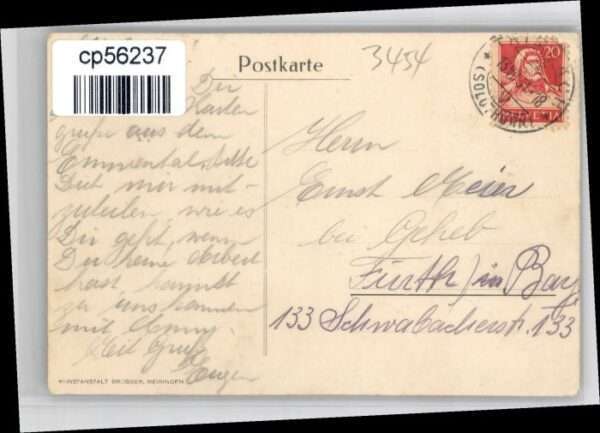 cp56237
Postkarte
3454
20
HELVETIA
Dir
Karten
gruß aus dem
Emmental, bitte
Dich mir mit-
zuteilen, wie es
Dir geht, wenn
Du keine Arbeit
hast, kommst
zu uns kommen
mit
Mit Gruß
Eugen
Herrn
Ernst Meier
bei Geheb
Fürth / in Bay
133 Schwabacherstr. 133
KUNSTANSTALT BROSSER, MEININGEN